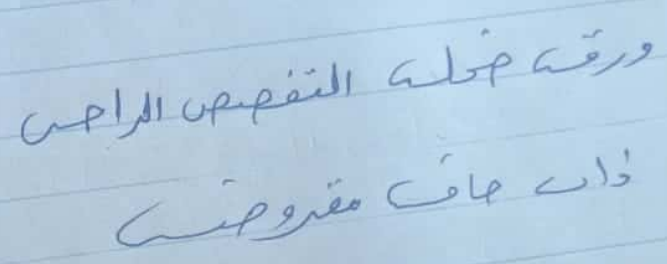 ورقة ضحلة التفصيص الراحي
ذات حافة مقروضة